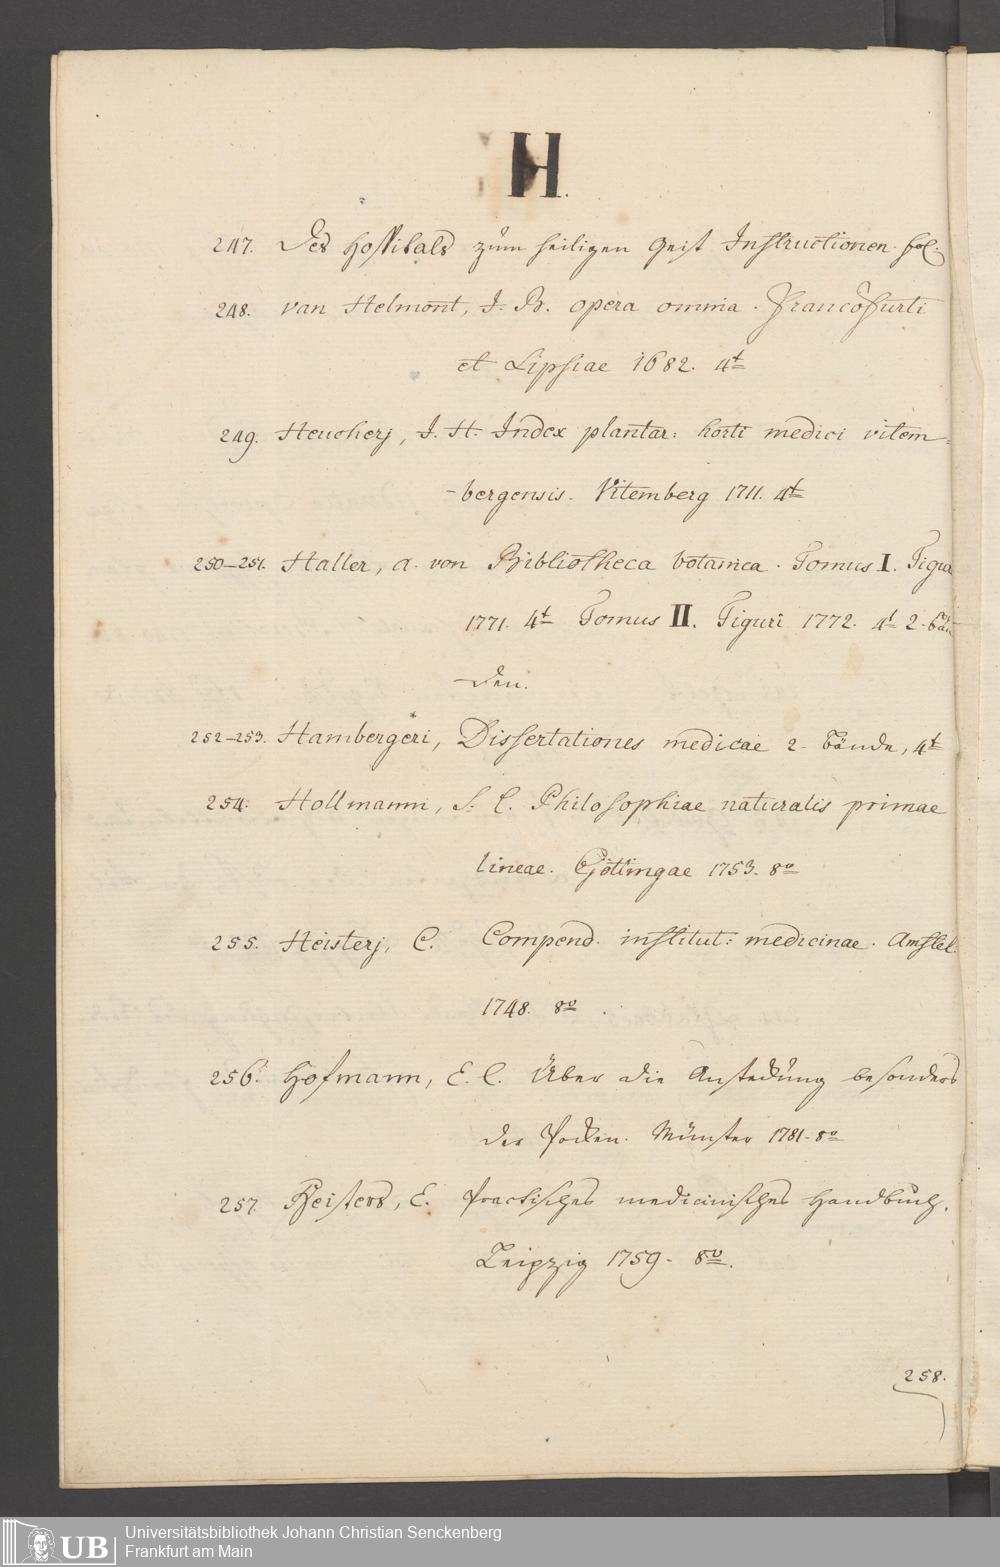 H.
247. Des Hospitals zum heiligen Geist Instructionen. fol.
248. van Helmont, I. B. opera omnia. Francofurti
et Lipsiae 1682. 4t
249. Heucherj, I. H. Index plantar: horti medici vitem-
-bergensis. Vitemberg 1711. 4t
250-251. Haller, a. von Bibliotheca botanica. Tomus I. Tigur
1771. 4t Tomus II. Tiguri 1772. 4t 2. bän
-den.
252-253. Hambergeri, Dissertationes medicae 2. bände, 4t
254. Hollmanni, S. C. Philosophiae naturalis primae
lineae. Göttingae 1753. 8o
255. Heisterj, C. Compend. institut: medicinae. Amstel.
1748. 8o
256. Hofmann, E. C. Über die Ansteckung besonders
der Pocken. Münster 1781. 8o
257. Heisters, E. Practisches medicinisches Handbuch.
Leipzig 1759. 8o.
258.
UB
Universitätsbibliothek Johann Christian Senckenberg
Frankfurt am Main